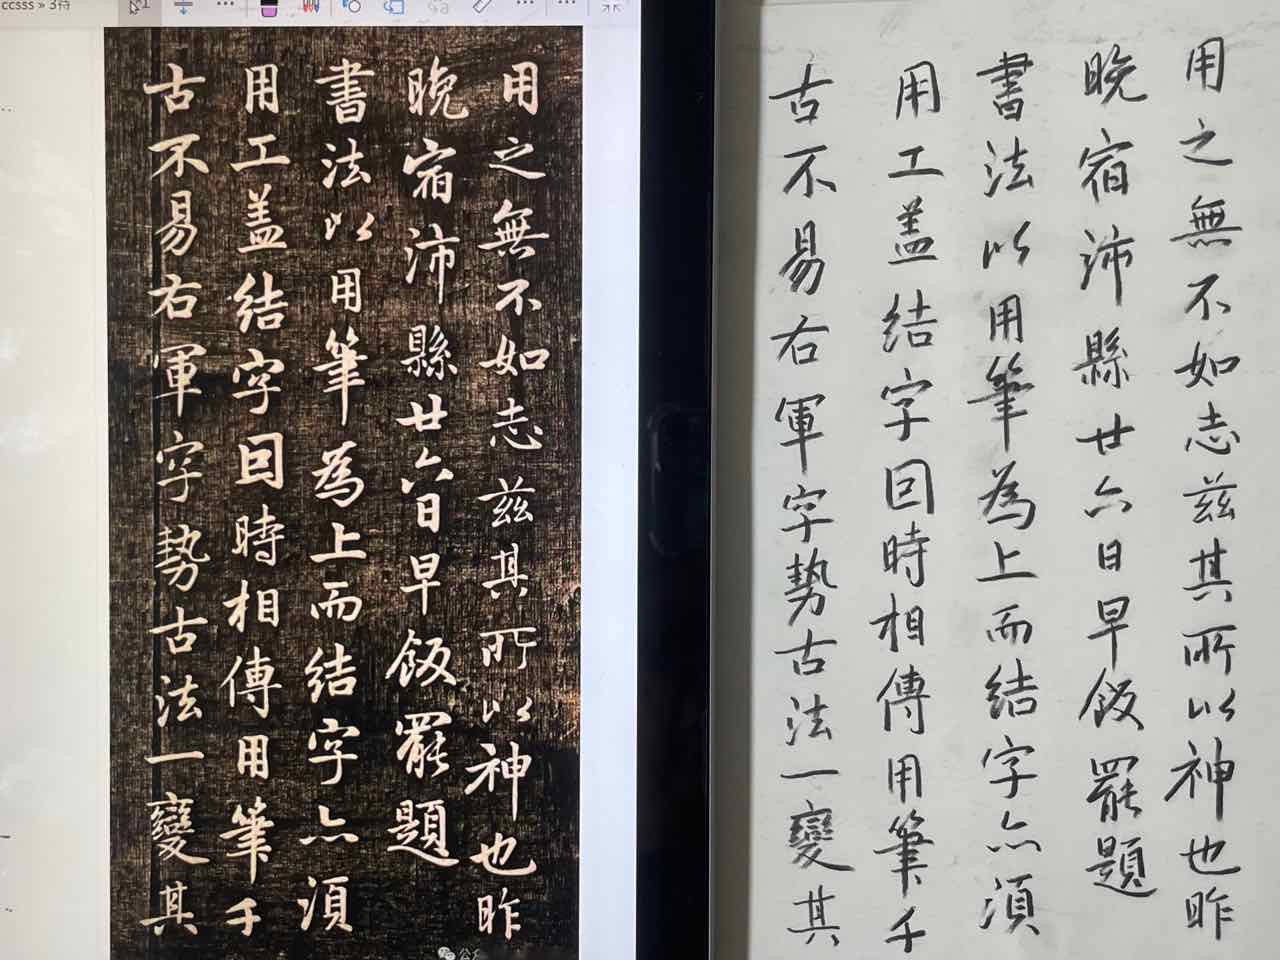 ccsss » 3待
用之無不如志兹其所以神也昨
晚宿沛縣廿六日早飯罷題
書法以用筆為上而結字亦須
用工盖結字回時相傳用筆千
古不易右軍字勢古法一變其
用之無不如志兹其所以神也昨
晚宿沛縣廿六日早飯罷題
書法以用筆為上而結字亦須
用工盖結字回時相傳用筆千
古不易右軍字勢古法一變其